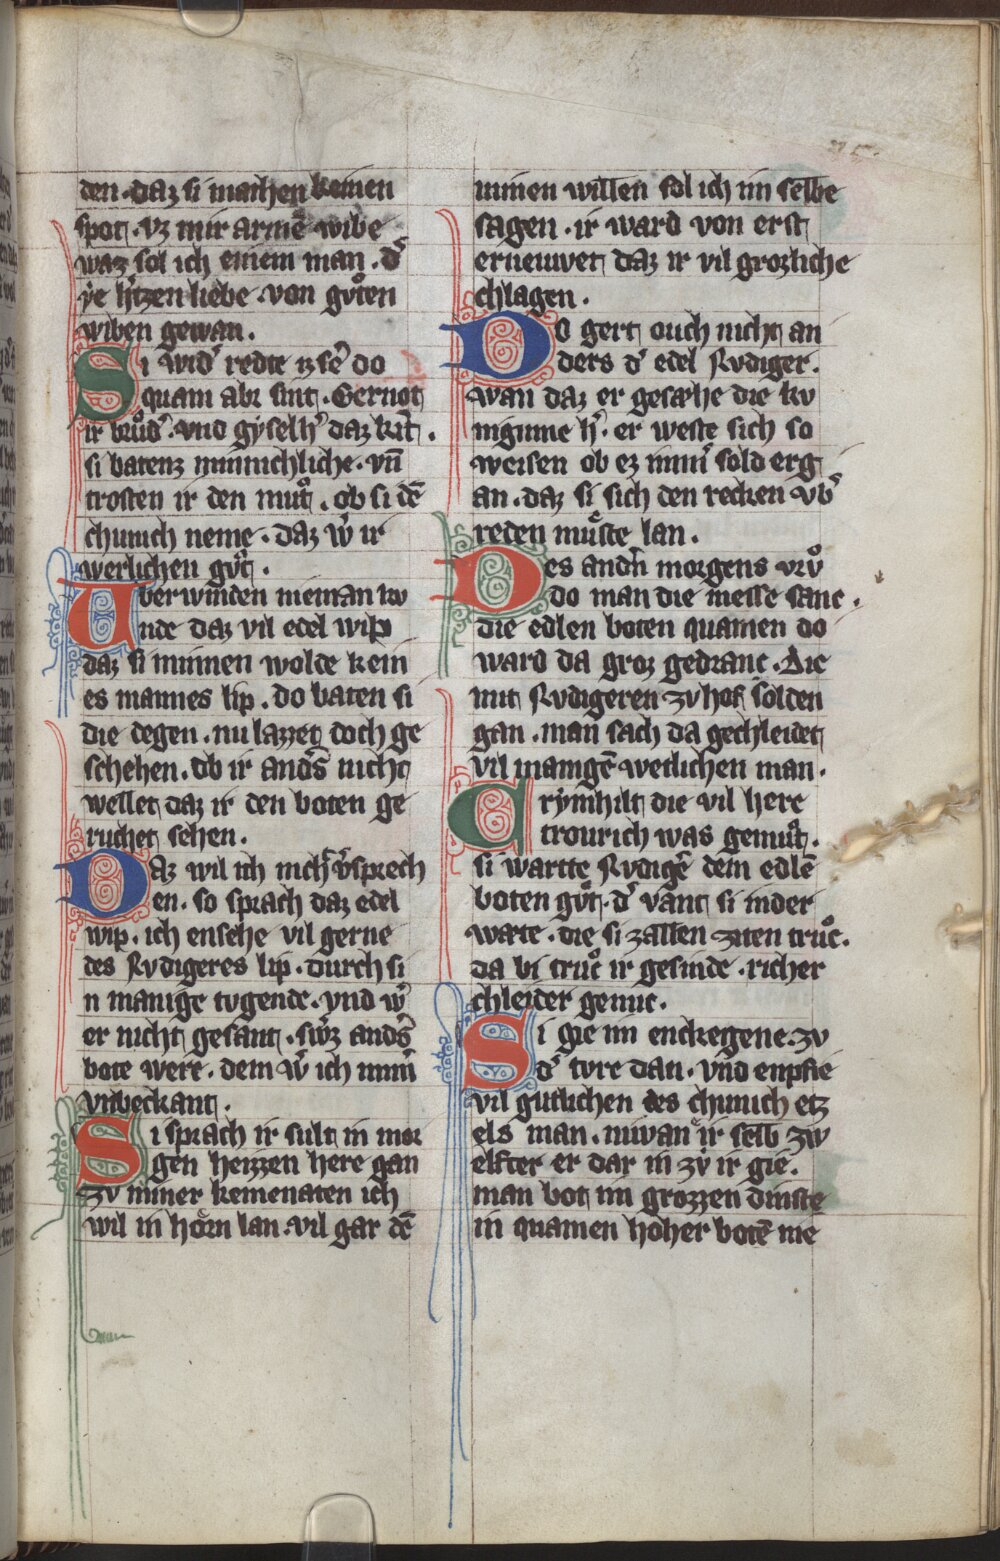 den. daz si machen keinen
spot. vz mir armē wibe
waz sol ich einem man. d̛
ye h̛tzen liebe von gůten
wiben gewan.
Si wid̛ redte iz se᷑ do
quam abr sint. Gernot
ir brůd̛. vnd gyselh̛ daz kīt.
si batenz minnichliche. vn̄
trosten ir den můt. ob si dē
chunich neme. daz w̛ ir
werlichen gůt.
Vberwinden nieman ko
nde daz vil edel wip
daz si minnen wolde kein
es mannes lip. do baten si
die degen. nu lazzet doch ge
schehen. ob ir and̛s nicht
wellet daz ir den boten ge
ruchet sehen.
Daz wil ich nicht v̛sprech
en. so sprach daz edel
wip. ich ensehe vil gerne
des Rvdigeres lip. durch si
n manige tvgende. vnd w̛
er nicht gesant. sw̛z and̛s
bote were. dem w̛ ich nim̄
vnbeckant.
Si sprach ir sult in mor
gen heizzen here gan
zv miner kemenaten ich
wil in hoͤrn lan. vil gar dē
minen willen sol ich im selbe
sagen. ir ward von erst
erneuwet daz ir vil grozliche
chlagen.
Do gert ouch nicht an
ders d̛ edel Rvdiger.
wan daz er gesæhe die kv
niginne h̛. er weste sich so
weisen ob ez im̄ sold erg
an. daz si sich den recken vb̛
reden můste lan.
Des and̛n morgens vrů
do man die messe sanc.
die edlen boten quamen do
ward da groz gedranc. Die
mit Rvdigeren zv hof solden
gan. man sach da gechleidet
vil manigē wetlichen man.
Crymhilt die vil here
trourich was gemůt.
si wartte Rvdige᷑ dem edlē
boten gůt. d̛ vant si inder
wate. die si zallen ziten trůc.
da bi trůc ir gesinde. richer
chleider genuc.
Si gie im enckegene. zv
d̛ tvre dan. vnd enpfie
vil gutlichen des chunich etz
els man. niwan ir selb zw
elfter er dar in zv ir gie.
man bot im grozzen dinste
in quamen hoher botē nie